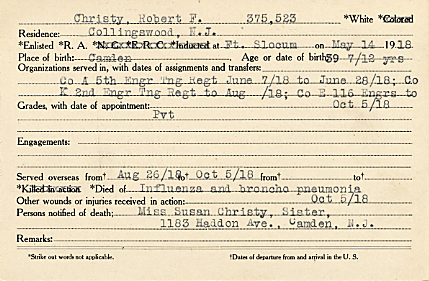 Christy, Robert F. 375,523 *White *Colored
Residence: Collingswood, N.J.
*Enlisted *R. A. *N. G. *E. R. C. *Inducted at Ft. Slocum on May 14 1918
Place of birth: Camden Age or date of birth: 39 7/12 yrs
Organizations served in, with dates of assignments and transfers:
Co A 5th Engr Tng Regt June 7/18 to June 28/18; Co
K 2nd Engr Tng Regt to Aug /18; Co E 116 Engrs to
Grades, with date of appointment: Oct 5/18
Pvt
Engagements:
Served overseas from† Aug 26/18 to† Oct 5/18 from† to†
*Killed in action *Died of Influenza and broncho pneumonia
Other wounds or injuries received in action: Oct 5/18
Persons notified of death: Miss Susan Christy, Sister,
1183 Haddon Ave., Camden, N.J.
Remarks:
*Strike out words not applicable. †Dates of departure from and arrival in the U. S.